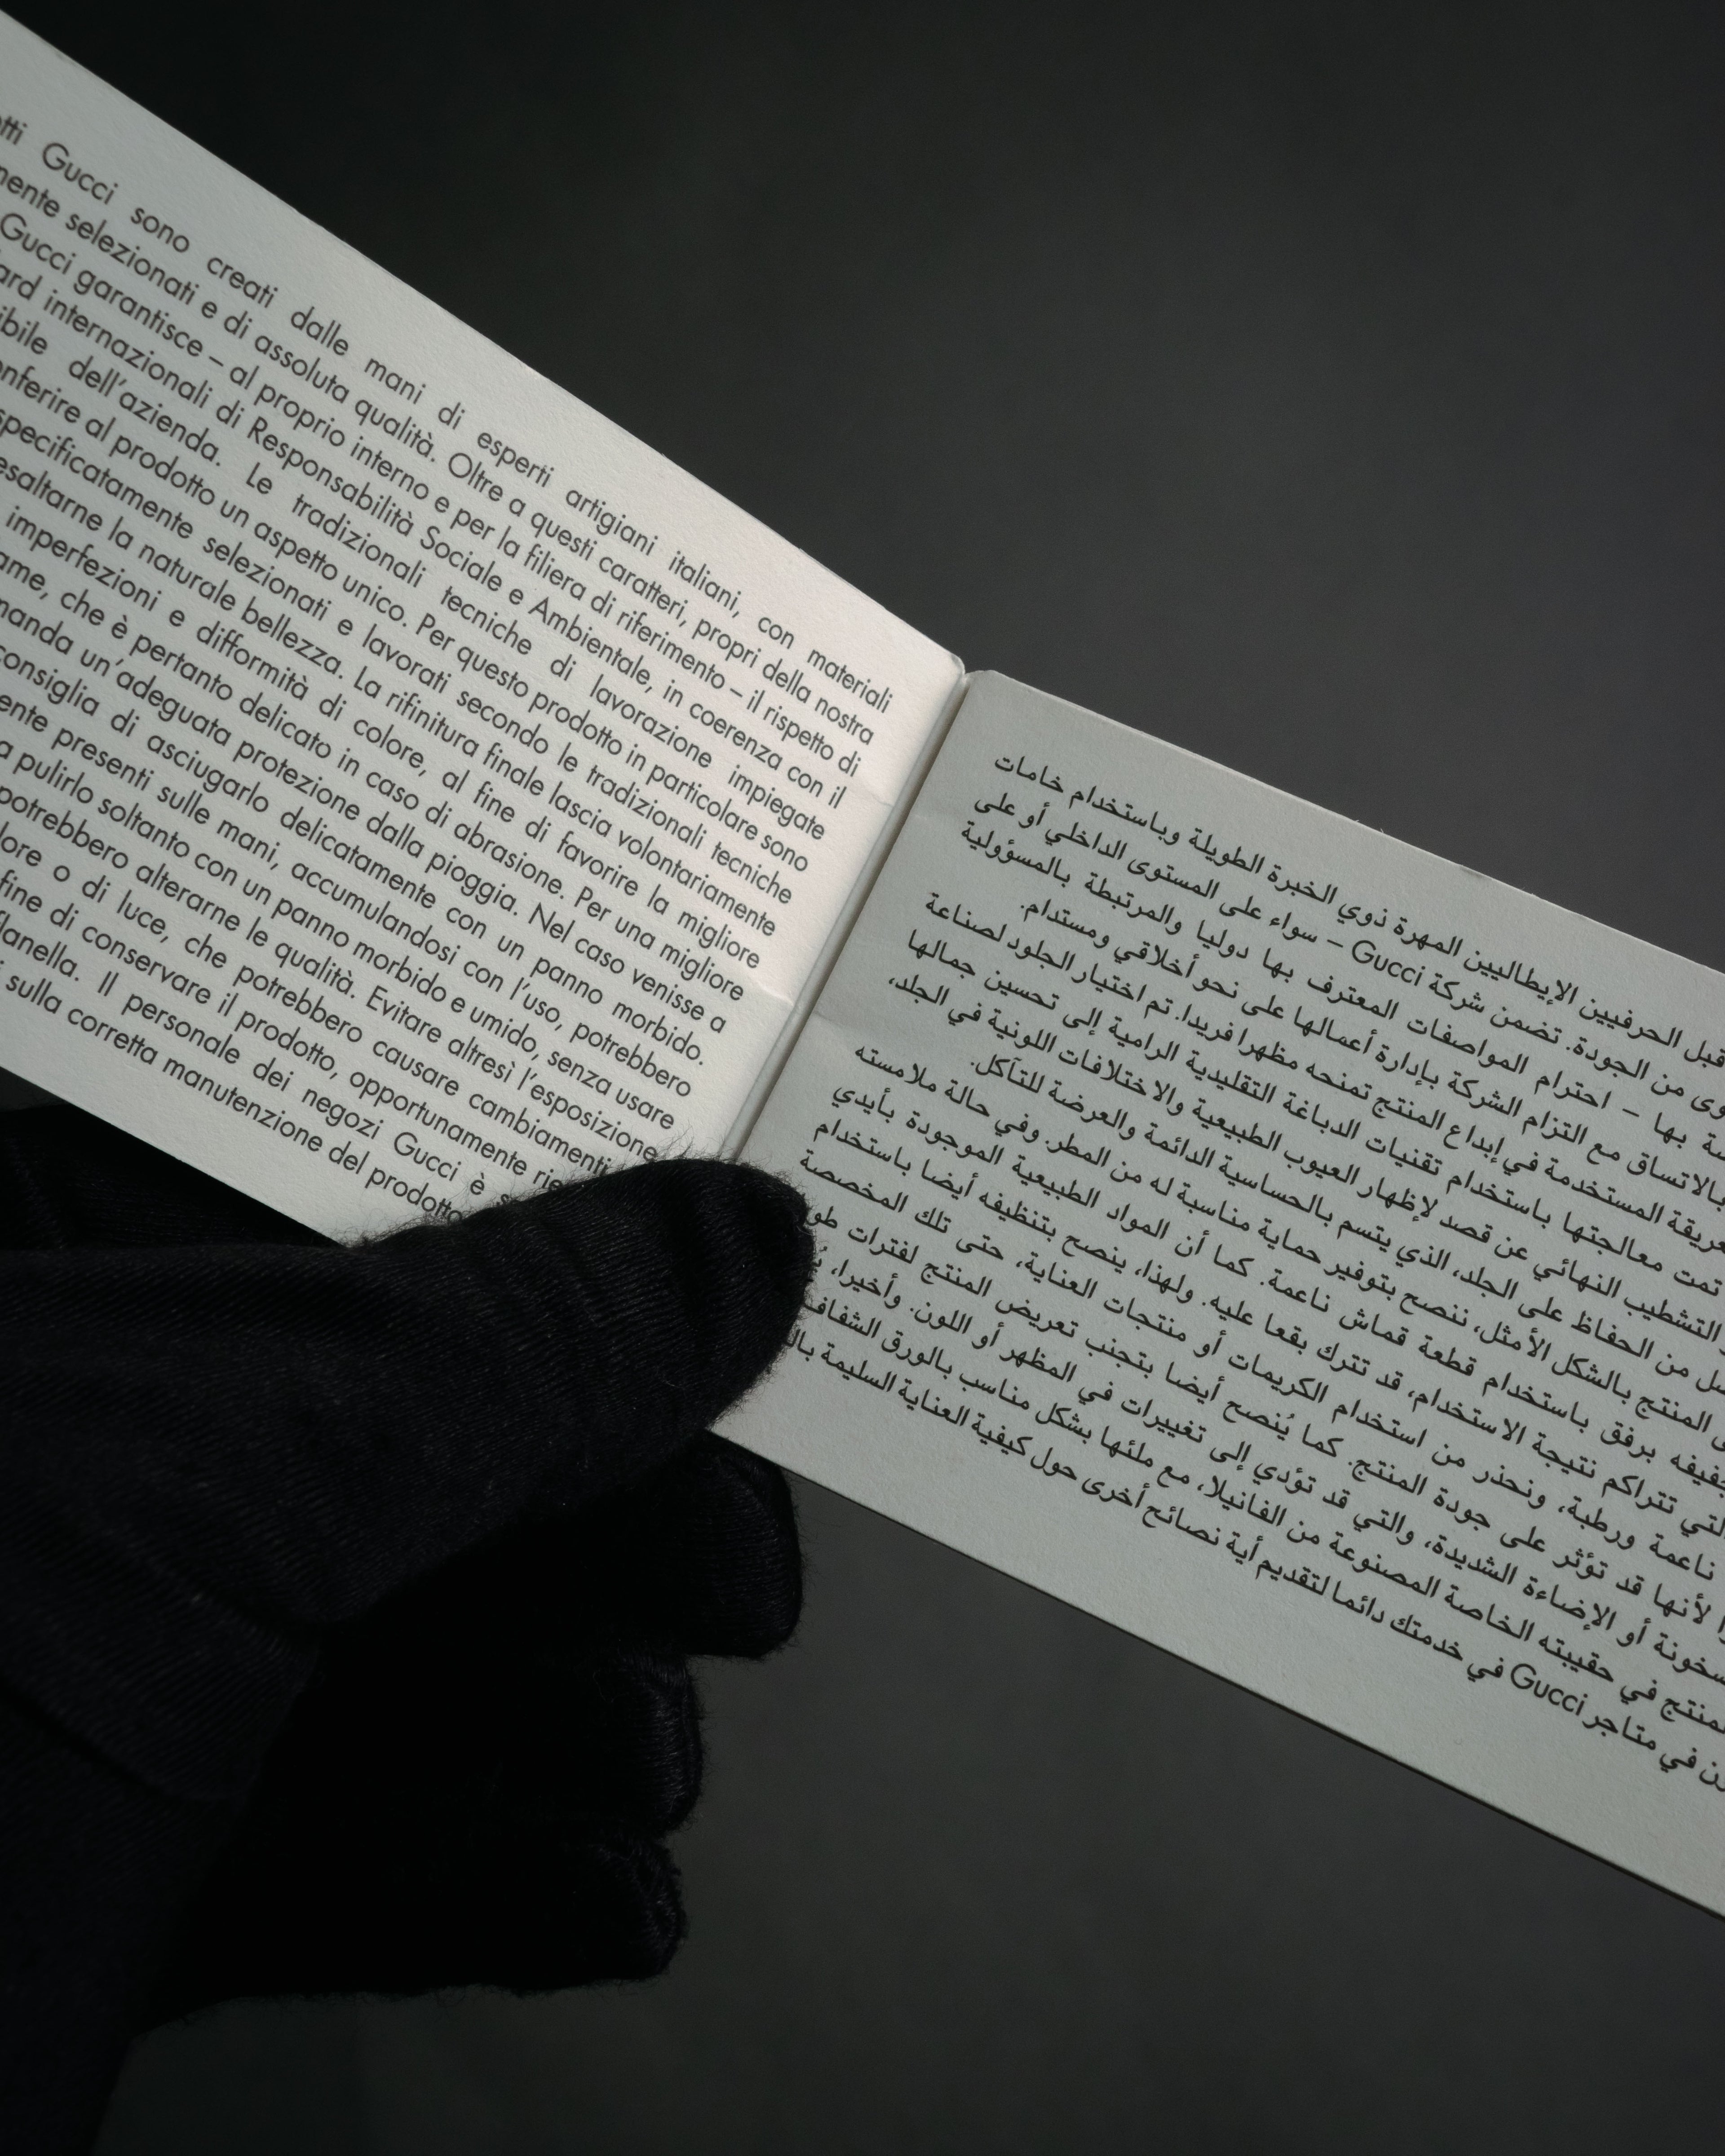 Gucci sono creati dalle mani di esperti artigiani italiani, con materiali
selezionati e di assoluta qualità. Oltre a questi caratteri, propri della nostra
Gucci garantisce – al proprio interno e per la filiera di riferimento – il rispetto di
internazionali di Responsabilità Sociale e Ambientale, in coerenza con il
dell'azienda. Le tradizionali tecniche di lavorazione impiegate
al prodotto un aspetto unico. Per questo prodotto in particolare sono
specificatamente selezionati e lavorati secondo le tradizionali tecniche
la naturale bellezza. La rifinitura finale lascia volontariamente
imperfezioni e difformità di colore, al fine di favorire la migliore
che è pertanto delicato in caso di abrasione. Per una migliore
un'adeguata protezione dalla pioggia. Nel caso venisse a
consiglia di asciugarlo delicatamente con un panno morbido.
presenti sulle mani, accumulandosi con l'uso, potrebbero
pulirlo soltanto con un panno morbido e umido, senza usare
potrebbero alterarne le qualità. Evitare altresì l'esposizione
o di luce, che potrebbero causare cambiamenti
fine di conservare il prodotto, opportunamente
Il personale dei negozi Gucci è
sulla corretta manutenzione del prodotto
قبل الحرفيين الإيطاليين المهرة ذوي الخبرة الطويلة وباستخدام خامات
من الجودة. تضمن شركة Gucci – سواء على المستوى الداخلي أو على
بها – احترام المواصفات المعترف بها دوليا والمرتبطة بالمسؤولية
بالاتساق مع التزام الشركة بإدارة أعمالها على نحو أخلاقي ومستدام.
المستخدمة في إبداع المنتج تمنحه مظهرا فريدا. تم اختيار الجلود لصناعة
تمت معالجتها باستخدام تقنيات الدباغة التقليدية الرامية إلى تحسين جمالها
التشطيب النهائي عن قصد لإظهار العيوب الطبيعية والاختلافات اللونية في الجلد،
من الحفاظ على الجلد، الذي يتسم بالحساسية الدائمة والعرضة للتآكل.
المنتج بالشكل الأمثل، ننصح بتوفير حماية مناسبة له من المطر. وفي حالة ملامسته
برفق باستخدام قطعة قماش ناعمة. كما أن المواد الطبيعية الموجودة بأيدي
تتراكم نتيجة الاستخدام، قد تترك بقعا عليه. ولهذا، ينصح بتنظيفه أيضا باستخدام
ناعمة ورطبة، ونحذر من استخدام الكريمات أو منتجات العناية، حتى تلك المخصصة
لأنها قد تؤثر على جودة المنتج. كما يُنصح أيضا بتجنب تعريض المنتج لفترات
أو الإضاءة الشديدة، والتي قد تؤدي إلى تغييرات في المظهر أو اللون. وأخيرا،
في حقيبته الخاصة المصنوعة من الفانيلا، مع ملئها بشكل مناسب بالورق
في متاجر Gucci في خدمتك دائما لتقديم أية نصائح أخرى حول كيفية العناية السليمة